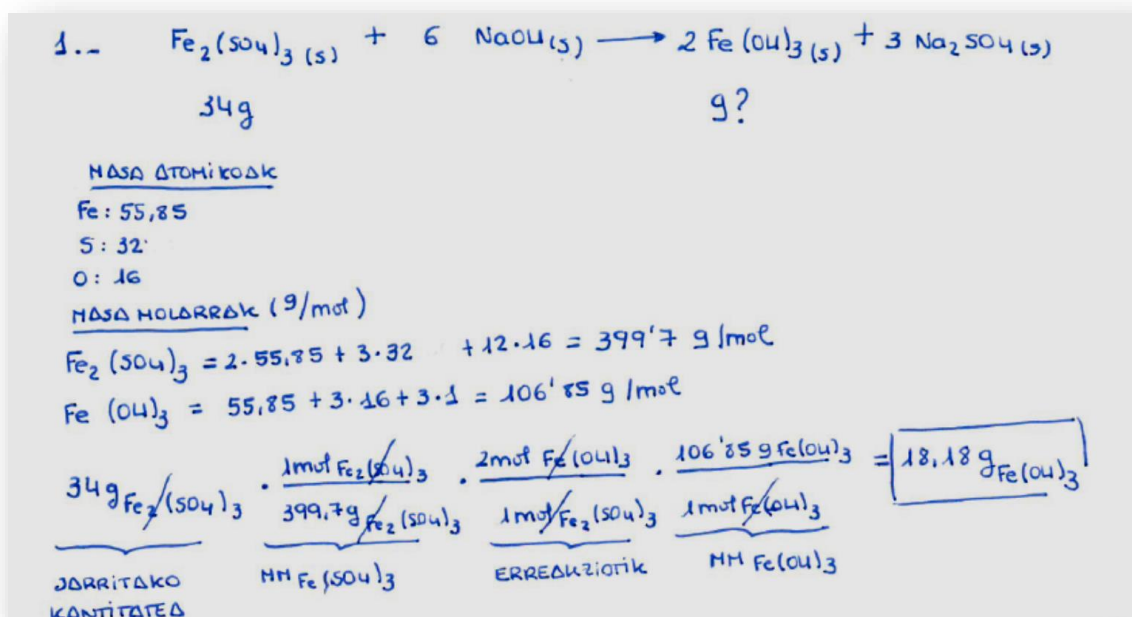 1.- Fe₂(SO₄)₃ (s) + 6 NaOH(s) → 2 Fe(OH)₃ (s) + 3 Na₂SO₄ (s)
34g g?
MASA ATOMIKOAK
Fe: 55,85
S: 32
O: 16
MASA MOLARRAK (g/mol)
Fe₂(SO₄)₃ = 2·55,85 + 3·32 + 12·16 = 399'7 g/mol
Fe(OH)₃ = 55,85 + 3·16 + 3·1 = 106'85 g/mol
34g Fe₂(SO₄)₃ · 1mol Fe₂(SO₄)₃ / 399,7g Fe₂(SO₄)₃ · 2mol Fe(OH)₃ / 1mol Fe₂(SO₄)₃ · 106'85 g Fe(OH)₃ / 1mol Fe(OH)₃ = 18,18 g Fe(OH)₃
JARRITAKO MM Fe(SO₄)₃ ERREAKZIOTIK MM Fe(OH)₃
KANTITATEA